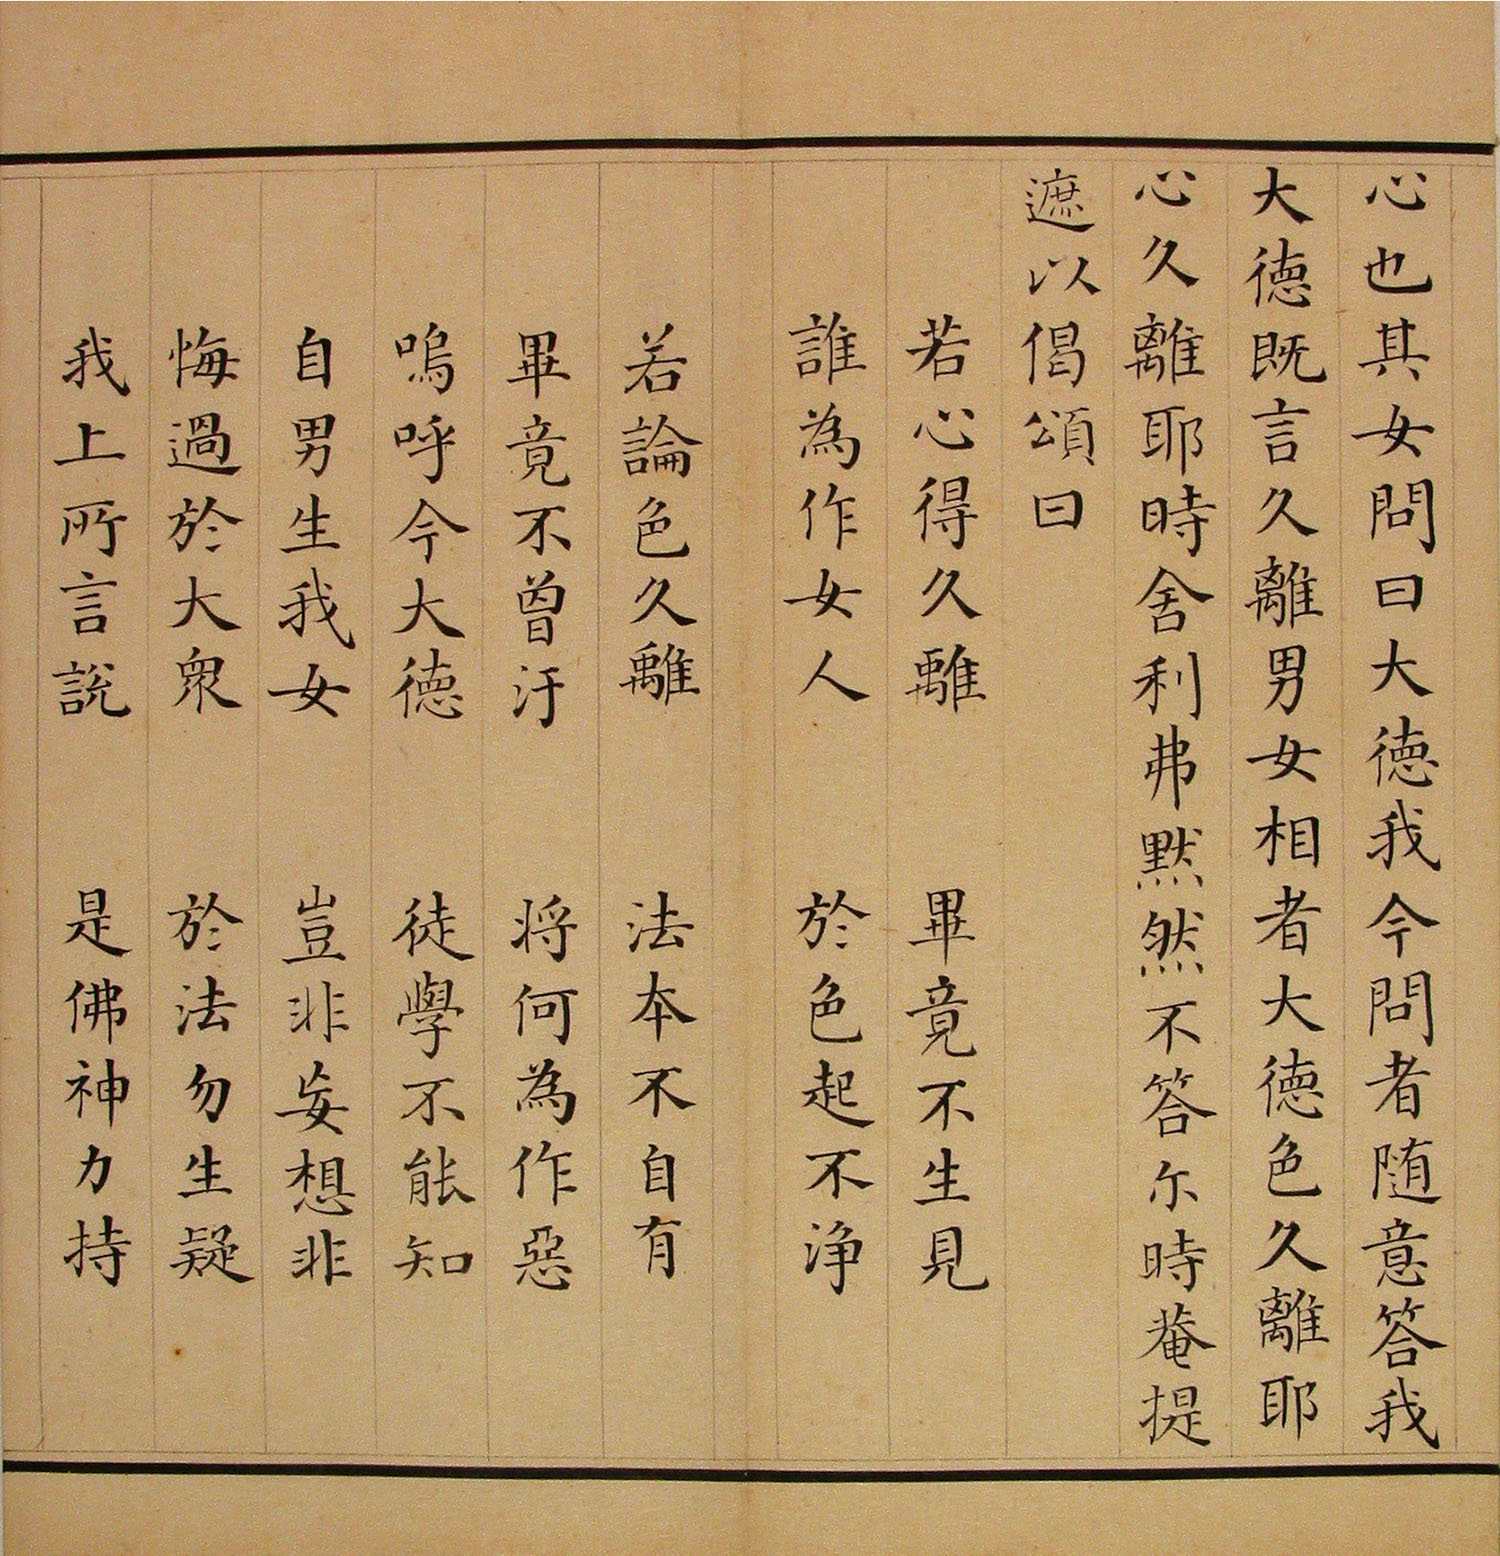 心也其女問曰大德我今問者随意答我
大德既言久離男女相者大德色久離耶
心久離耶時舍利弗默然不答尓時菴提
遮以偈頌曰
若心得久離　畢竟不生見
誰為作女人　於色起不浄
若論色久離　法本不自有
畢竟不曾汙　将何為作惡
嗚呼今大德　徒學不能知
自男生我女　豈非妄想非
悔過於大眾　於法勿生疑
我上所言說　是佛神力持